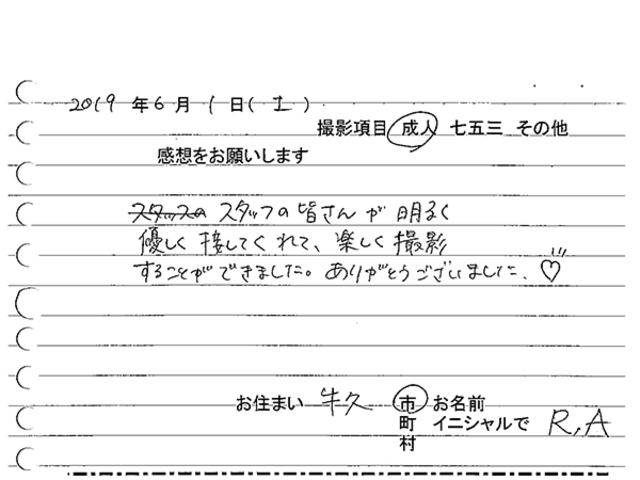 2019 年 6 月 1 日( 土 )
撮影項目 成人 七五三 その他
感想をお願いします
スタッフの スタッフの 皆さん が 明るく
優しく 接してくれて、楽しく 撮影
することができました。ありがとうございました。♡
お住まい 牛久 市 お名前
町 イニシャルで R,A
村